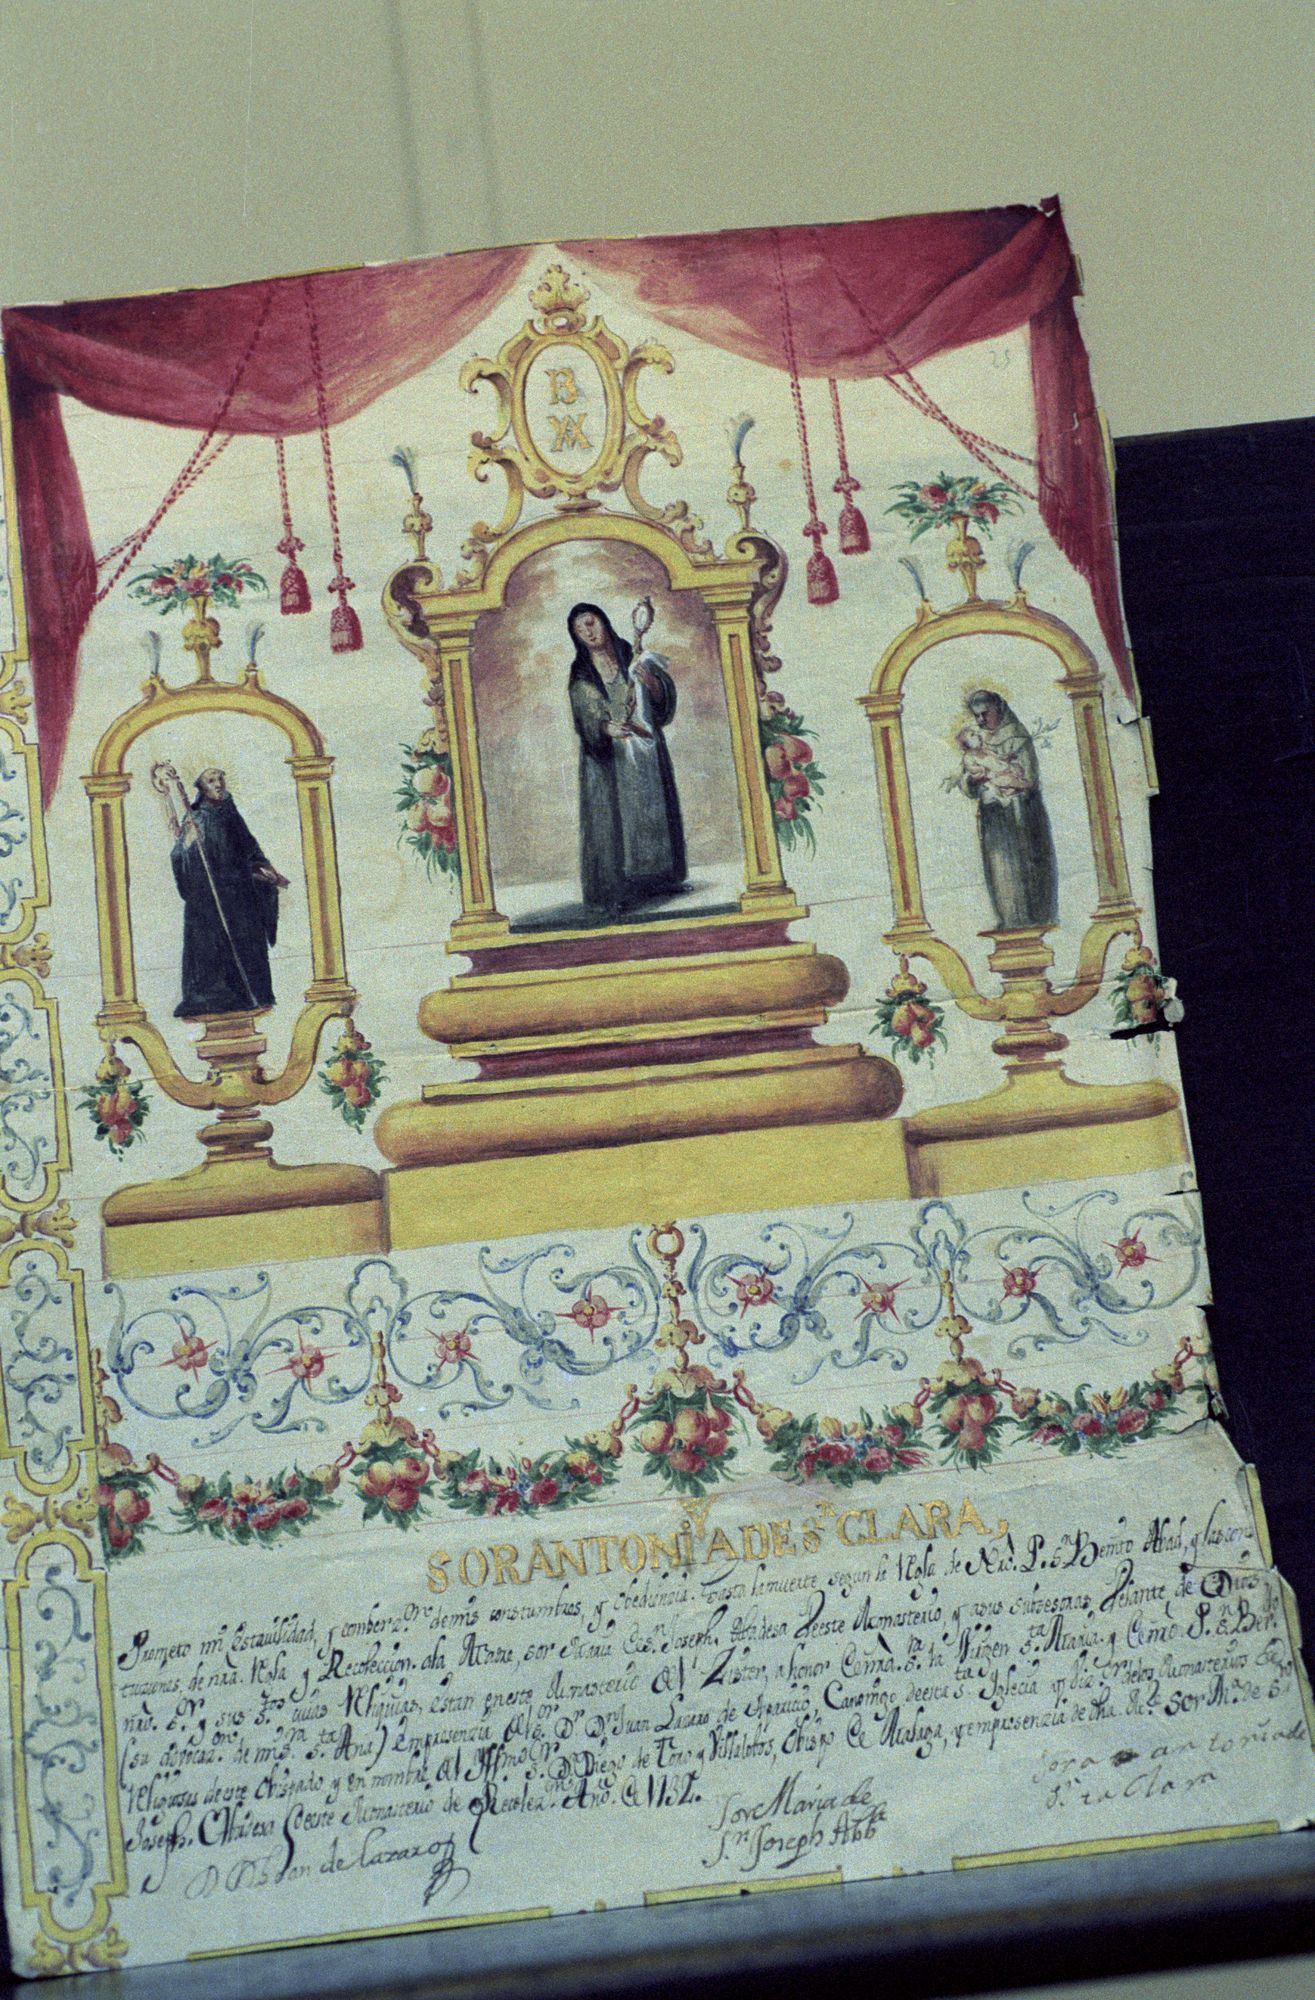 25
YO
SOR ANTONIA DE Sᵀᴬ CLARA,
Prometo mi estauilidad, y combersᵒⁿ de mis constumbres, y obediencia hasta la muerte segun la Regla de Nrõ. P. Sⁿ Benito Abad, y las cons
tituciones de nrã. Regla y Recoleccion. a la Madre, sor Maria de Sⁿ. Joseph. Abadesa de este Monasterio, y a sus subzesoras delante de Dios
nrõ. Sʳ. y sus Sᵗᵒˢ cuias Reliquias, estan en este Monasterio del Zister, a honor de nrã. Sʳᵃ la Virgen Sᵗᵃ Maria. y de nrõ. P. Sⁿ Ber.
(su aduocazᵒⁿ. de mrã. Sʳᵃ Sᵗᵃ Ana) En presenzia del Sᵒʳ Dʳ Dⁿ Juan Lazaro de Aparicio, Canonigo de esta Sᵗᵃ Iglecia y de los Monasterios de
Religiosas de este Obispado y en nombre del Yllmᵒ Sʳ. D. Diego de Toro y Villalobos, Obispo de Malaga, y em presenzia de dha. Mᵉ. Sor Mᵃ de Sⁿ
Joseph. Abadesa de este Monasterio de Recolez. Año. de 1732.
D Dⁿ Juan de Lazaro
Sor Maria de
Sⁿ Joseph Abbᵃ
Sor antonia de
Sᵗᵃ Clara